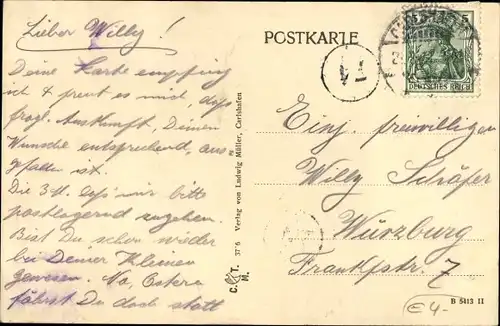 Lieber Willy!
Deine Karte empfing
ich & freut es mich, daß
fragl. Auskunft, Deinem
Wunsche entsprechend, aus-
gefallen ist.
Die 3 M. laß mir bitte
postlagernd zugehen.
Bist Du schon wieder
bei Deiner Kleinen
gewesen. Na, Ostern
fährst Du doch statt
POSTKARTE
5
DEUTSCHES REICH
Einj. freiwilligen
Willy Schäfer
Würzburg
Frankfstr. 7
37 6 Verlag von Ludwig Müller, Carlshafen
C. T.
M.
B 5413 II
€4-